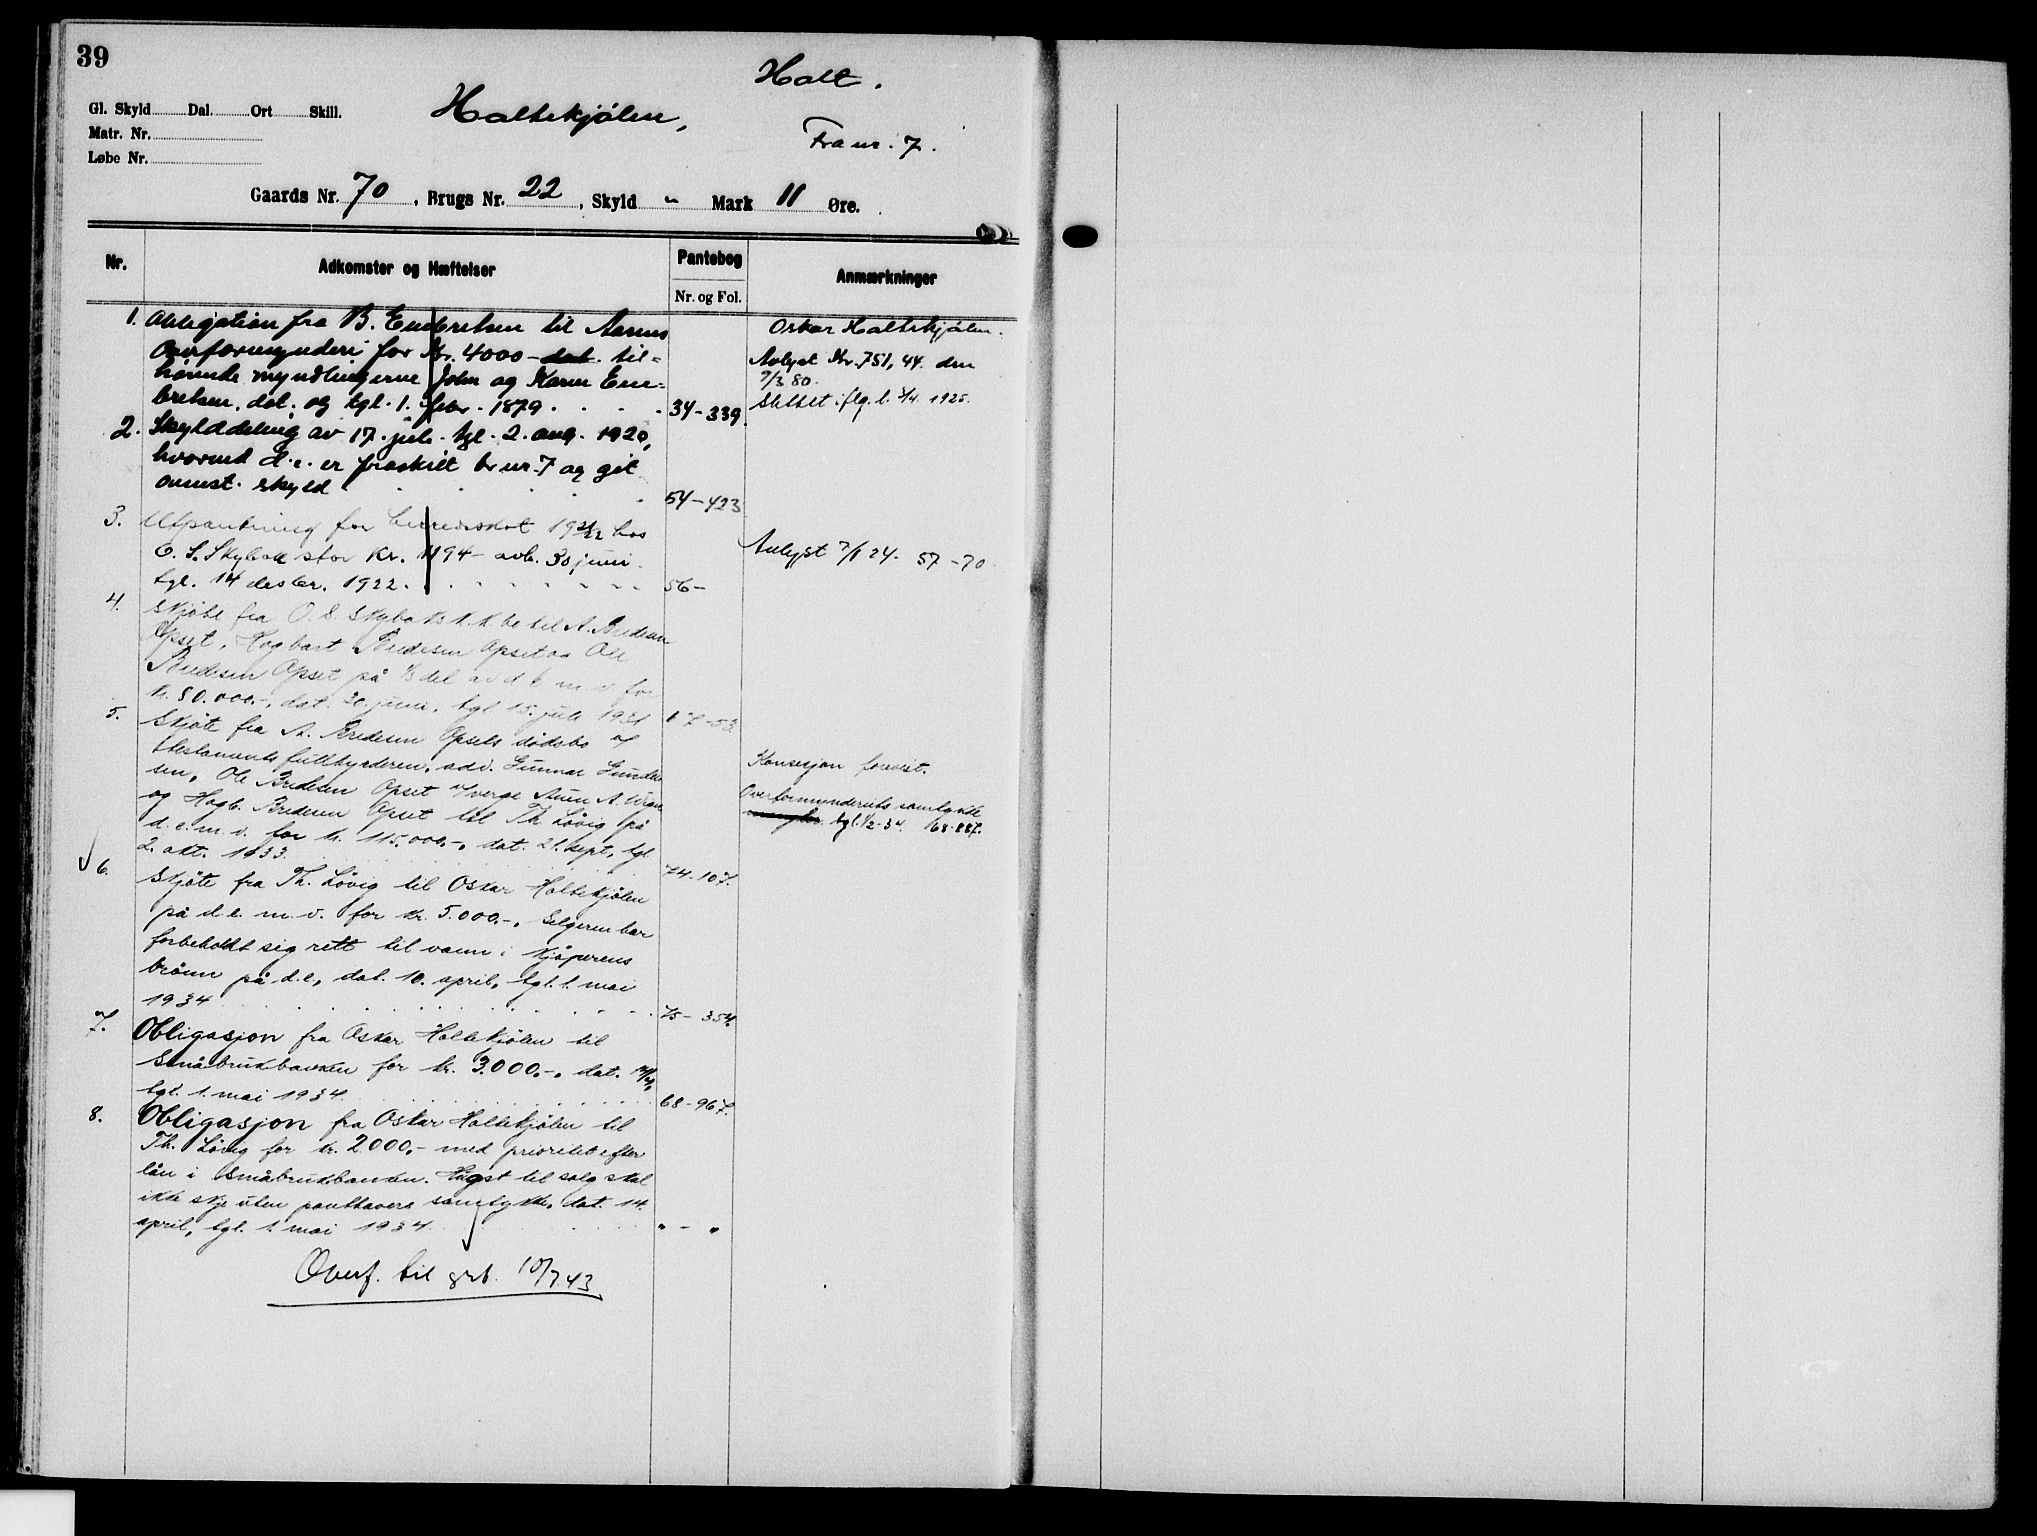 39
Holt.
Gl. Skyld Dal. Ort Skill.
Holtekjölen,
Matr. Nr.
Fra nr. 7.
Løbe Nr.
Gaards Nr. 70, Brugs Nr. 22, Skyld " Mark 11 Øre.
Nr. Adkomster og Hæftelser Pantebog Nr. og Fol. Anmærkninger
1. Obligation fra B. Embretsen til Aasnes
Overformynderi for Kr. 4000 - dat. til-
hörende myndlingerne John og Karen Em-
bretsen, dat. og tgl. 1. febr. 1879. 34-339.
Oskar Holtekjölen.
Avlyst Nr. 751, 44. den
9/3 80.
Slettet iflg. l. 3/4. 1925.
2. Skylddeling av 17. juli tgl. 2. aug. 1920,
hvorved d.e. er fraskilt br nr. 7 og git
ovenst. skyld 54-423
3. Utpantning for herredsskat 1921/22 hos
O. S. Skybak stor Kr. 1194- avh. 30 juni
tgl. 14 desbr. 1922. 56-
Avlyst 7/1 24. 57-70
4. Skjöte fra O. S. Skybaks k.k.bo til A. Bredesen
Opset, Hagbart Bredesen Opset og Ole
Bredesen Opset på 1/3 del av d e m. v. for
kr. 80.000.-, dat. 20. juni, tgl 15. juli 1931 67-53.
5. Skjöte fra A. Bredesen Opsets dödsbo v/
testamentsfullbyrderen, adv. Gunnar Gunder
sen, Ole Bredesen Opset v/verge Auen A.
og Hagb. Bredesen Opset til Th. Lövig på
d.e.m.v. for kr. 115.000.-, dat. 21. sept, tgl
2. okt. 1933. 74-107.
Konsesjon forevist.
Overformynderiets samtykke
mangler tgl. 1/2-34. 68-887.
6. Skjöte fra Th. Lövig til Oskar Holtekjölen
på d.e. m. v. for kr. 5.000.-. Selgeren har
forbeholdt sig rett til vann i kjöperens
brönn på d.e, dat. 10. april, tgl. 1. mai
1934 75-354.
7. Obligasjon fra Oskar Holtekjölen til
Småbrukbanken for kr. 3.000.-. dat. 14/4,
tgl. 1. mai 1934. 68-967.
8. Obligasjon fra Oskar Holtekjölen til
Th. Lövig for kr. 2000,- med prioritet efter
lån i Småbrukbanken. Hogst til salg skal
ikke skje uten panthavers samtykke, dat. 14.
april, tgl. 1. mai 1934. " - "
Overf. til grb. 10/7 43